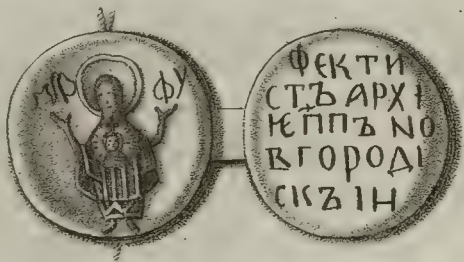 МР ФУ
ФЕКТИ
СТЪ АРХІ
ІЄППЪ NО
ВГОРОДІ
СКЪІН